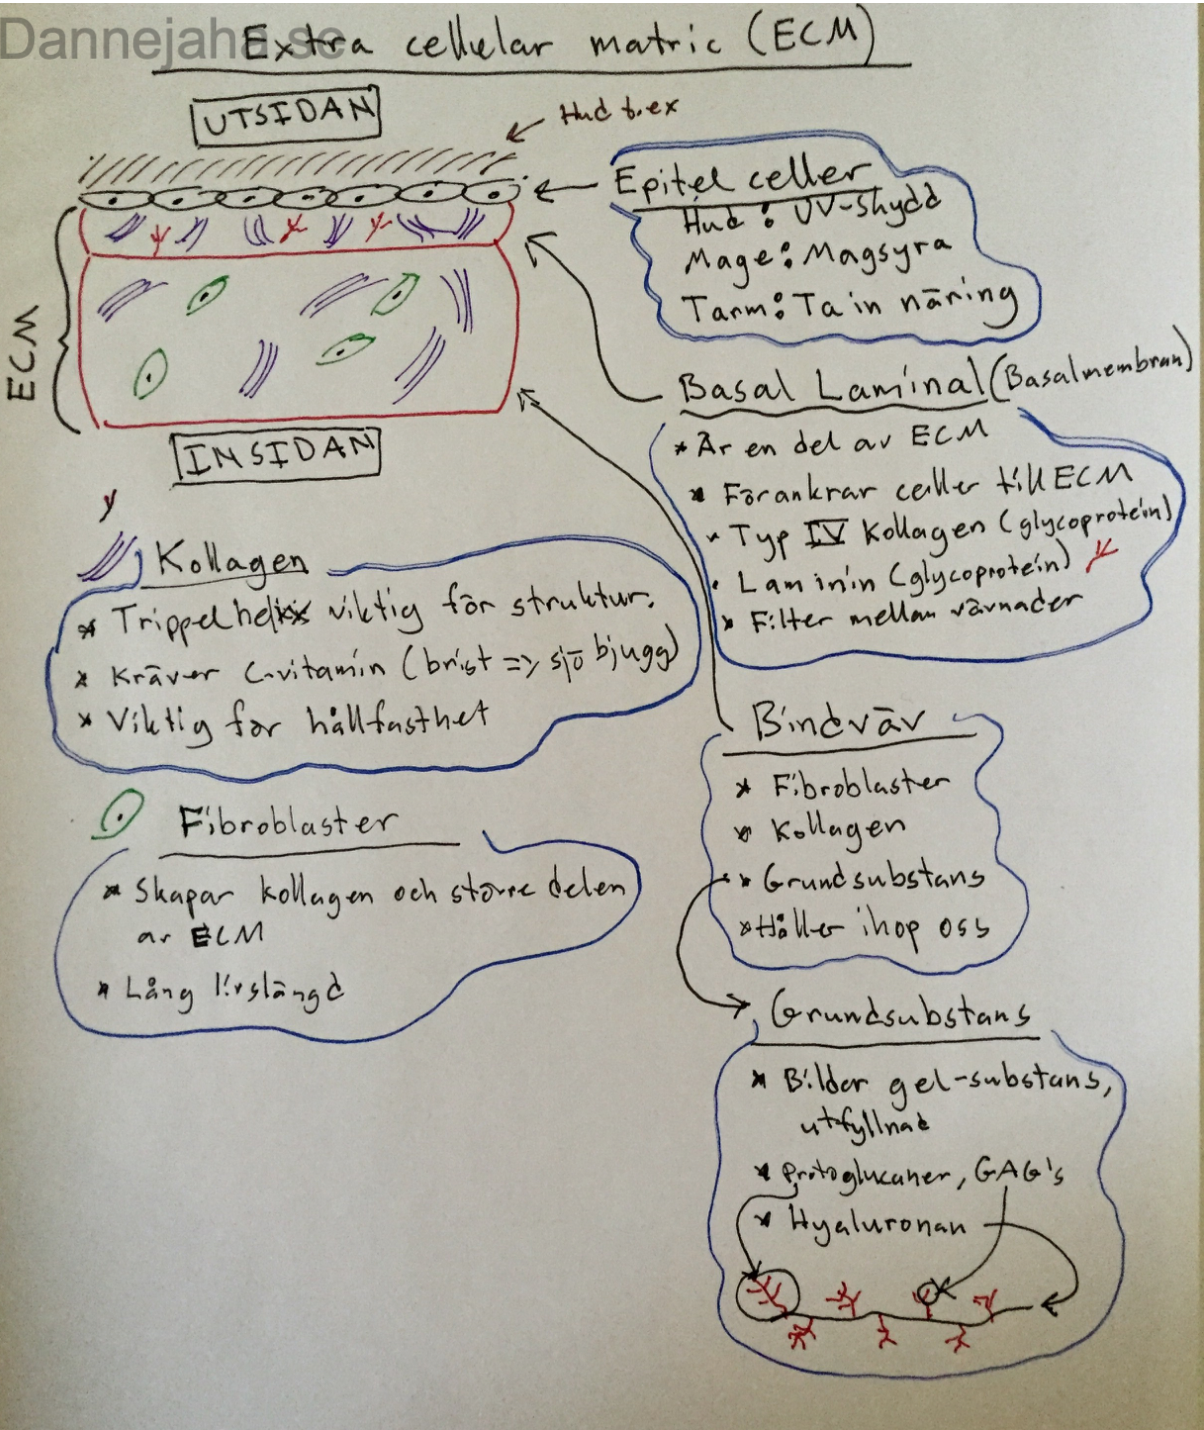 Dannejaha.se
Extra cellular matric (ECM)
UTSIDAN
Hud t.ex
Epitel celler
Hud: UV-skydd
Mage: Magsyra
Tarm: Ta in näring
ECM
Basal Laminal (Basalmembran)
* Är en del av ECM
* Förankrar celler till ECM
* Typ IV Kollagen (glycoprotein)
* Laminin (glycoprotein)
* Filter mellan vävnader
INSIDAN
Kollagen
* Trippelhelix viktig för struktur.
* Kräver C-vitamin (brist => sjöbjugg)
* Viktig för hållfasthet
Bindväv
* Fibroblaster
* Kollagen
* Grundsubstans
* Håller ihop oss
Fibroblaster
* Skapar kollagen och större delen
av ECM
* Lång livslängd
Grundsubstans
* Bildar gel-substans,
utfyllnad
* Protoglucaner, GAG's
* Hyaluronan